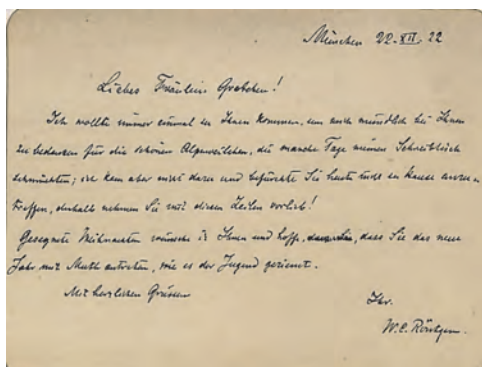 München 22. XII. 22
Liebes Fräulein Gretchen!
Ich wollte immer einmal zu Ihnen kommen, um mich mündlich bei Ihnen
zu bedanken für die schönen Alpenveilchen, die manche Tage meinen Schreibtisch
schmückten; ich kam aber nicht dazu und befürchte Sie heute nicht zu Hause anzu-
treffen, deshalb nehmen Sie mit diesen Zeilen vorlieb!
Gesegnete Weihnachten wünsche ich Ihnen und hoffe, dass Sie das neue
Jahr mit Muth antreten, wie es der Jugend geziemt.
Mit herzlichen Grüssen
Ihr.
W. C. Röntgen.